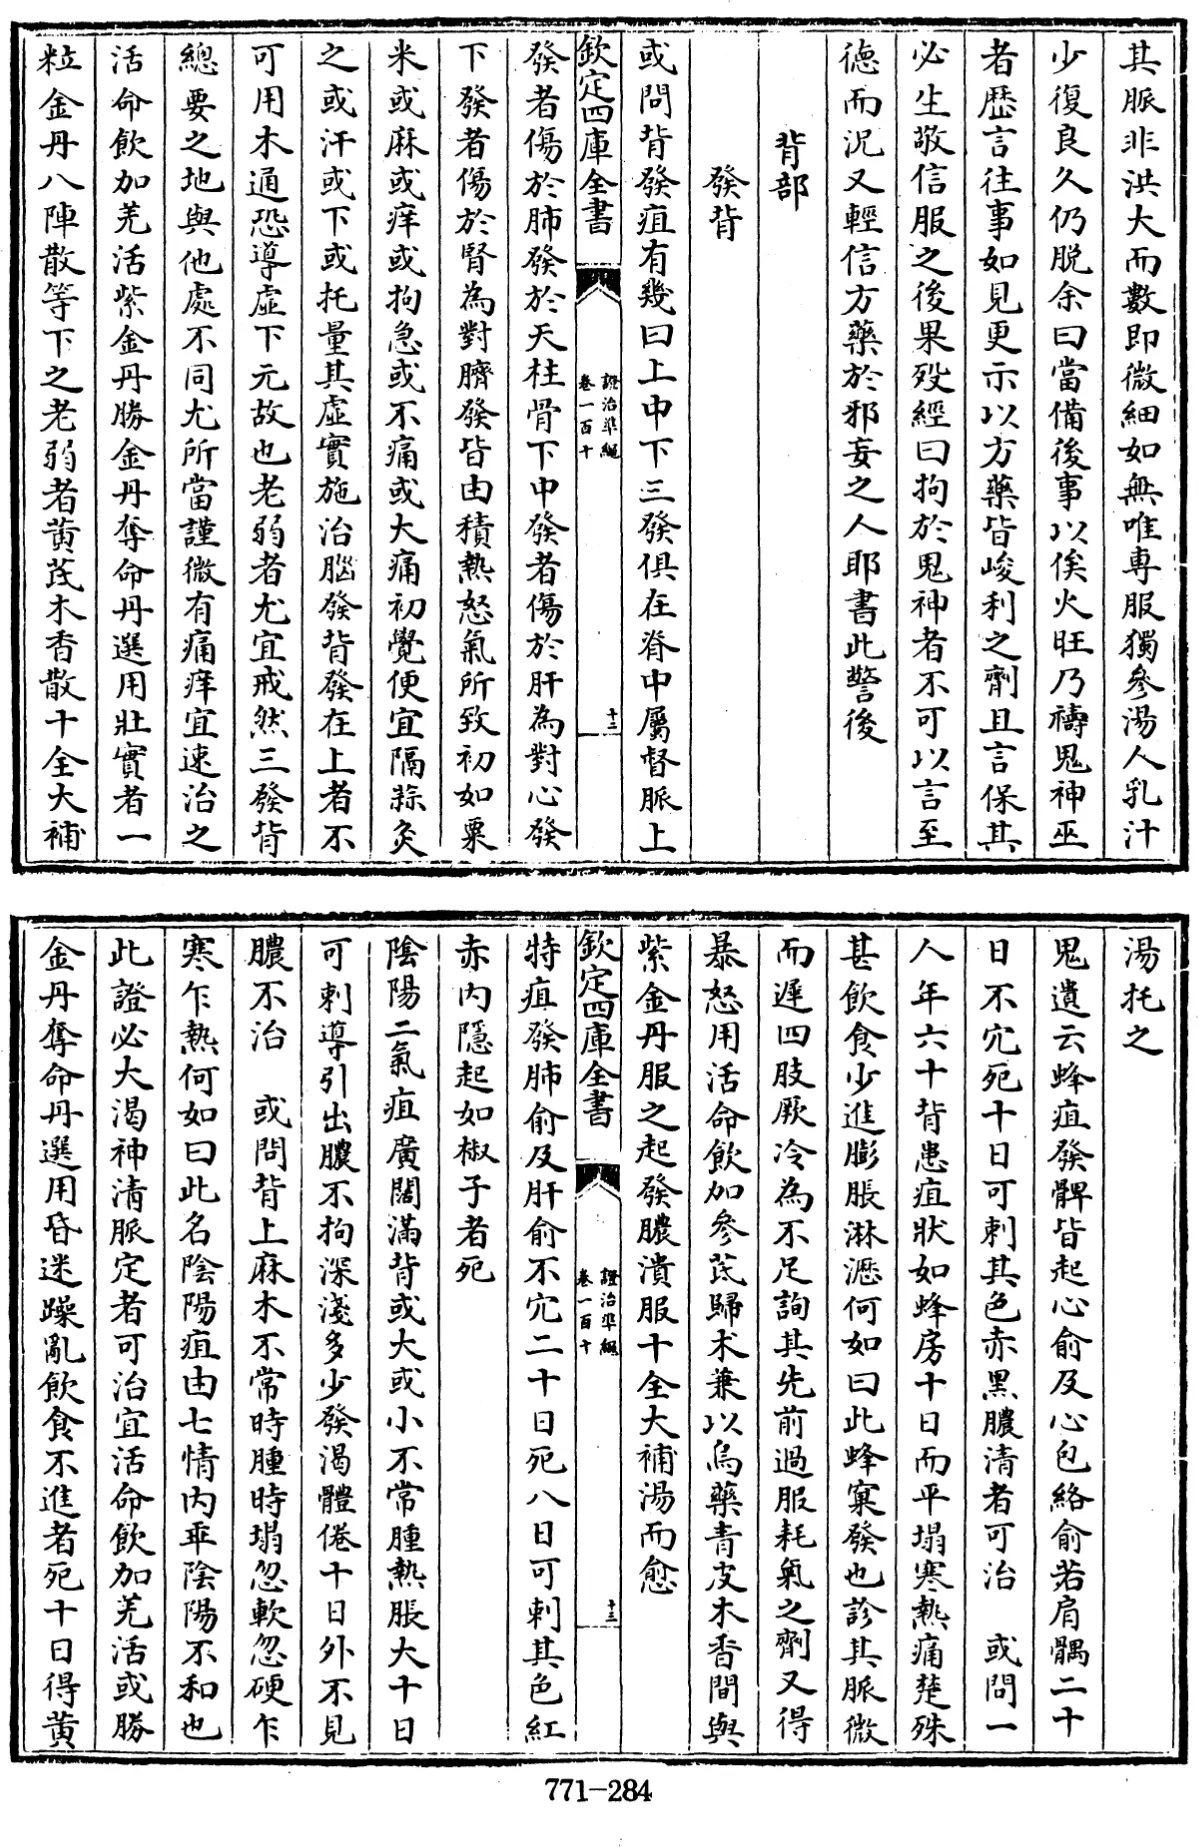 其脈非洪大而數即微細如無唯専服獨參湯人乳汁
少復良久仍脱余曰當備後事以俟火旺乃禱鬼神巫
者歴言往事如見更示以方藥皆峻利之劑且言保其
必生敬信服之後果殁經曰拘於鬼神者不可以言至
德而況又輕信方藥於邪妄之人耶書此警後
背部
發背
或問背發疽有幾曰上中下三發俱在脊中屬督脈上
欽定四庫全書
證治準繩
卷一百十
十二
發者傷於肺發於天柱骨下中發者傷於肝為對心發
下發者傷於腎為對臍發皆由積熱怒氣所致初如粟
米或麻或痒或拘急或不痛或大痛初覺便宜隔蒜灸
之或汗或下或托量其虚實施治腦發背發在上者不
可用木通恐導虚下元故也老弱者尤宜戒然三發背
總要之地與他處不同尤所當謹微有痛痒宜速治之
活命飲加羌活紫金丹勝金丹奪命丹選用壯實者一
粒金丹八陣散等下之老弱者黄芪木香散十全大補
湯托之
鬼遺云蜂疽發髀皆起心俞及心包絡俞若肩髃二十
日不穴死十日可刺其色赤黒膿清者可治　或問一
人年六十背患疽狀如蜂房十日而平塌寒熱痛楚殊
甚飲食少進膨脹淋瀝何如曰此蜂窠發也診其脈微
而遲四肢厥冷為不足詢其先前過服耗氣之劑又得
暴怒用活命飲加參芪歸术兼以烏藥青皮木香間與
紫金丹服之起發膿潰服十全大補湯而愈
欽定四庫全書
證治準繩
卷一百十
十三
特疽發肺俞及肝俞不穴二十日死八日可刺其色紅
赤内隱起如椒子者死
陰陽二氣疽廣闊滿背或大或小不常腫熱脹大十日
可刺導引出膿不拘深淺多少發渴體倦十日外不見
膿不治　或問背上麻木不常時腫時塌忽軟忽硬乍
寒乍熱何如曰此名陰陽疽由七情内乖陰陽不和也
此證必大渴神清脈定者可治宜活命飲加羌活或勝
金丹奪命丹選用昏迷躁亂飲食不進者死十日得黄
771-284